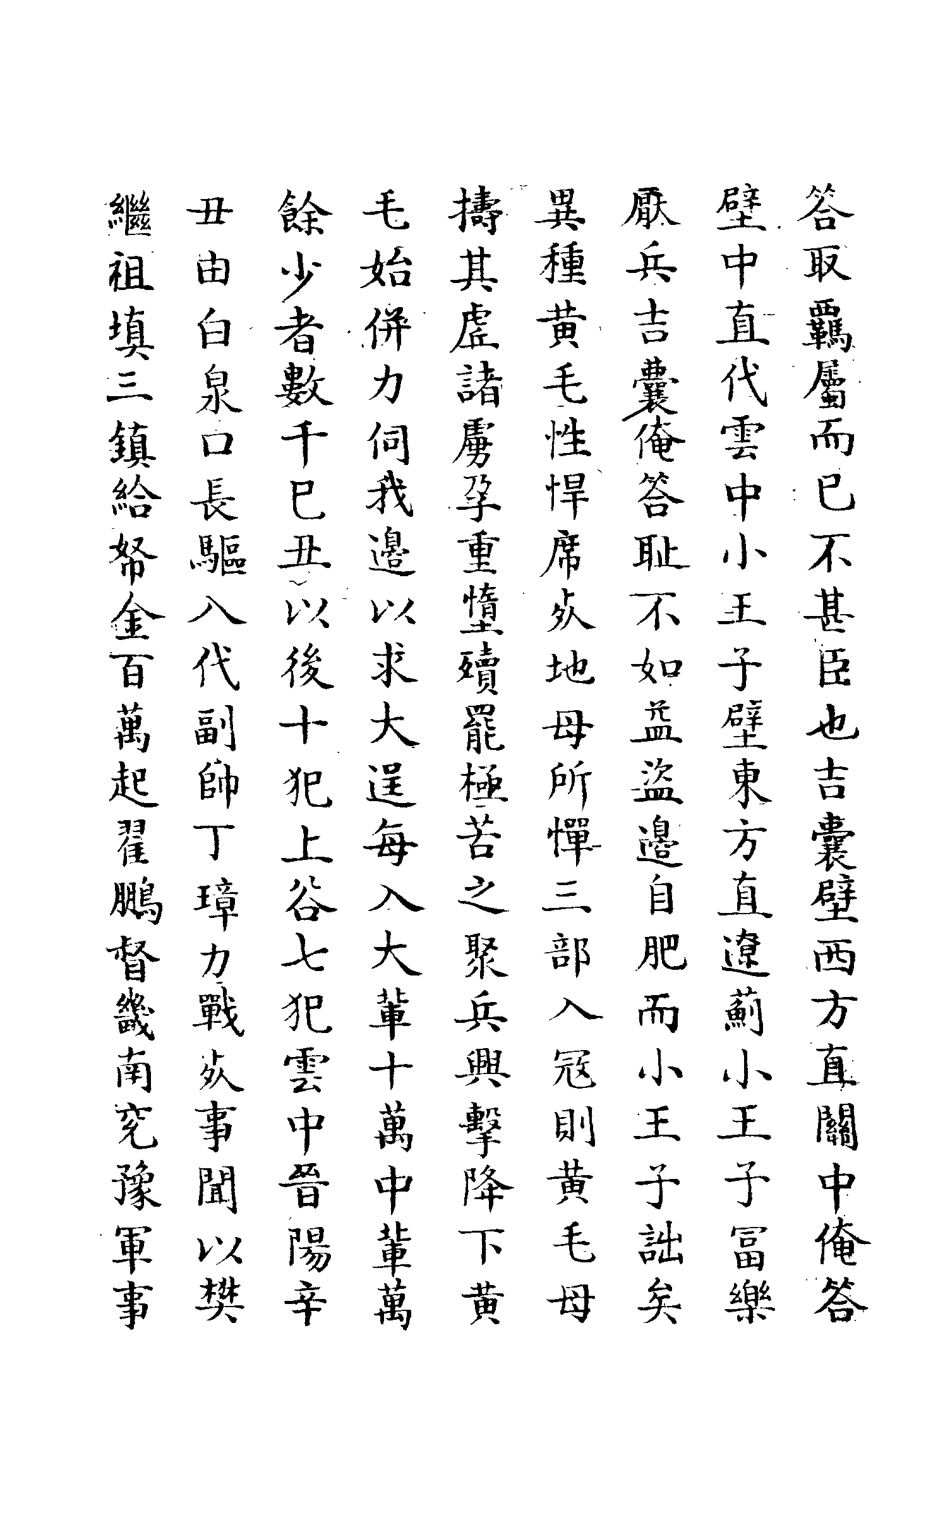 答取羈屬而已不甚臣也吉囊壁西方直關中俺答
壁中直代雲中小王子壁東方直遼薊小王子冨樂
厭兵吉囊俺答耻不如益盜邊自肥而小王子詘矣
異種黄毛性悍席㱙地母所憚三部入冦則黄毛母
擣其虗諸虜孕重墮殰罷極苦之聚兵興擊降下黄
毛始併力伺我邊以求大逞每入大軰十萬中軰萬
餘少者數千巳丑以後十犯上谷七犯雲中晉陽辛
丑由白泉口長驅入代副帥丁璋力戰㱙事聞以樊
繼祖填三鎮給帑金百萬起翟鵬督畿南兖豫軍事